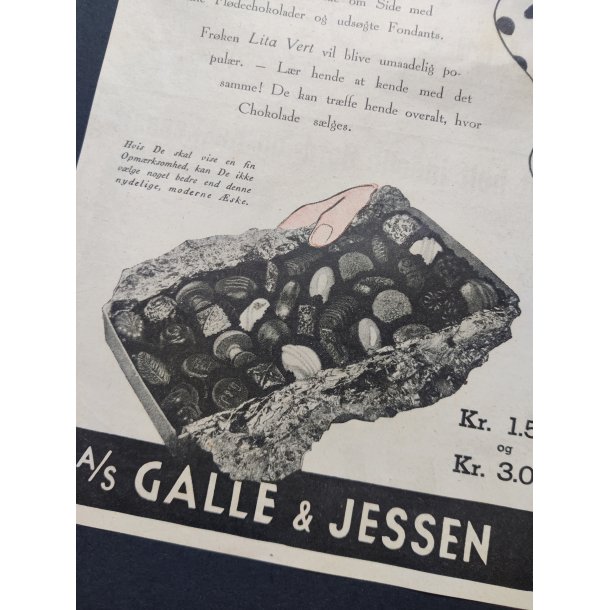 om Side med
Flødechokolader og udsøgte Fondants.
Frøken Lita Vert vil blive umaadelig po-
pulær. — Lær hende at kende med det
samme! De kan træffe hende overalt, hvor
Chokolade sælges.
Hvis De skal vise en fin
Opmærksomhed, kan De ikke
vælge noget bedre end denne
nydelige, moderne Æske.
Kr. 1.5
og
Kr. 3.0
A/S GALLE & JESSEN